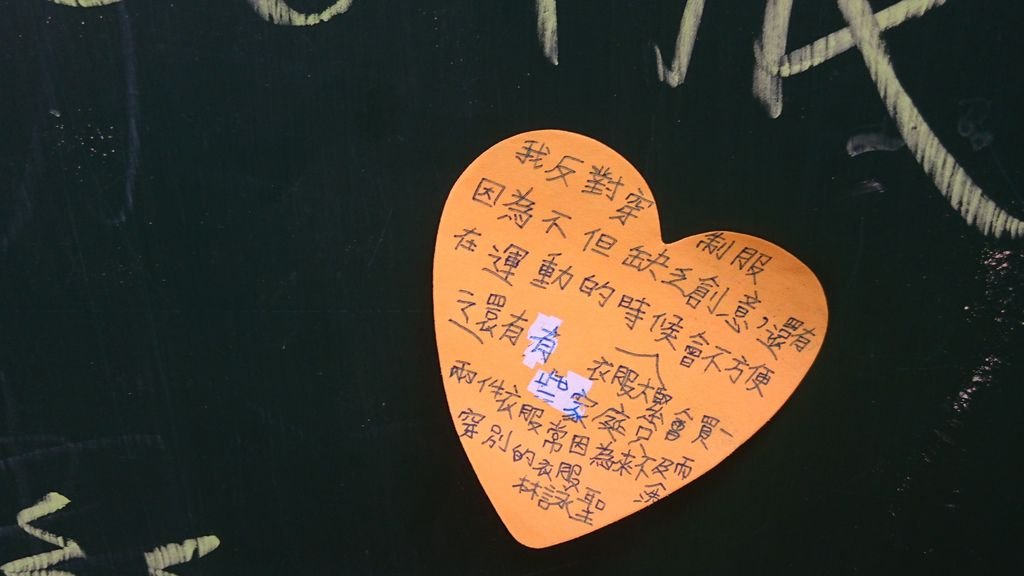 我反對穿制服
因為不但缺乏創意,還有
在運動的時候會不方便
之還有有衣服大
些家庭會買一
兩件衣服常因為來不及而
穿別的衣服
林詠聖